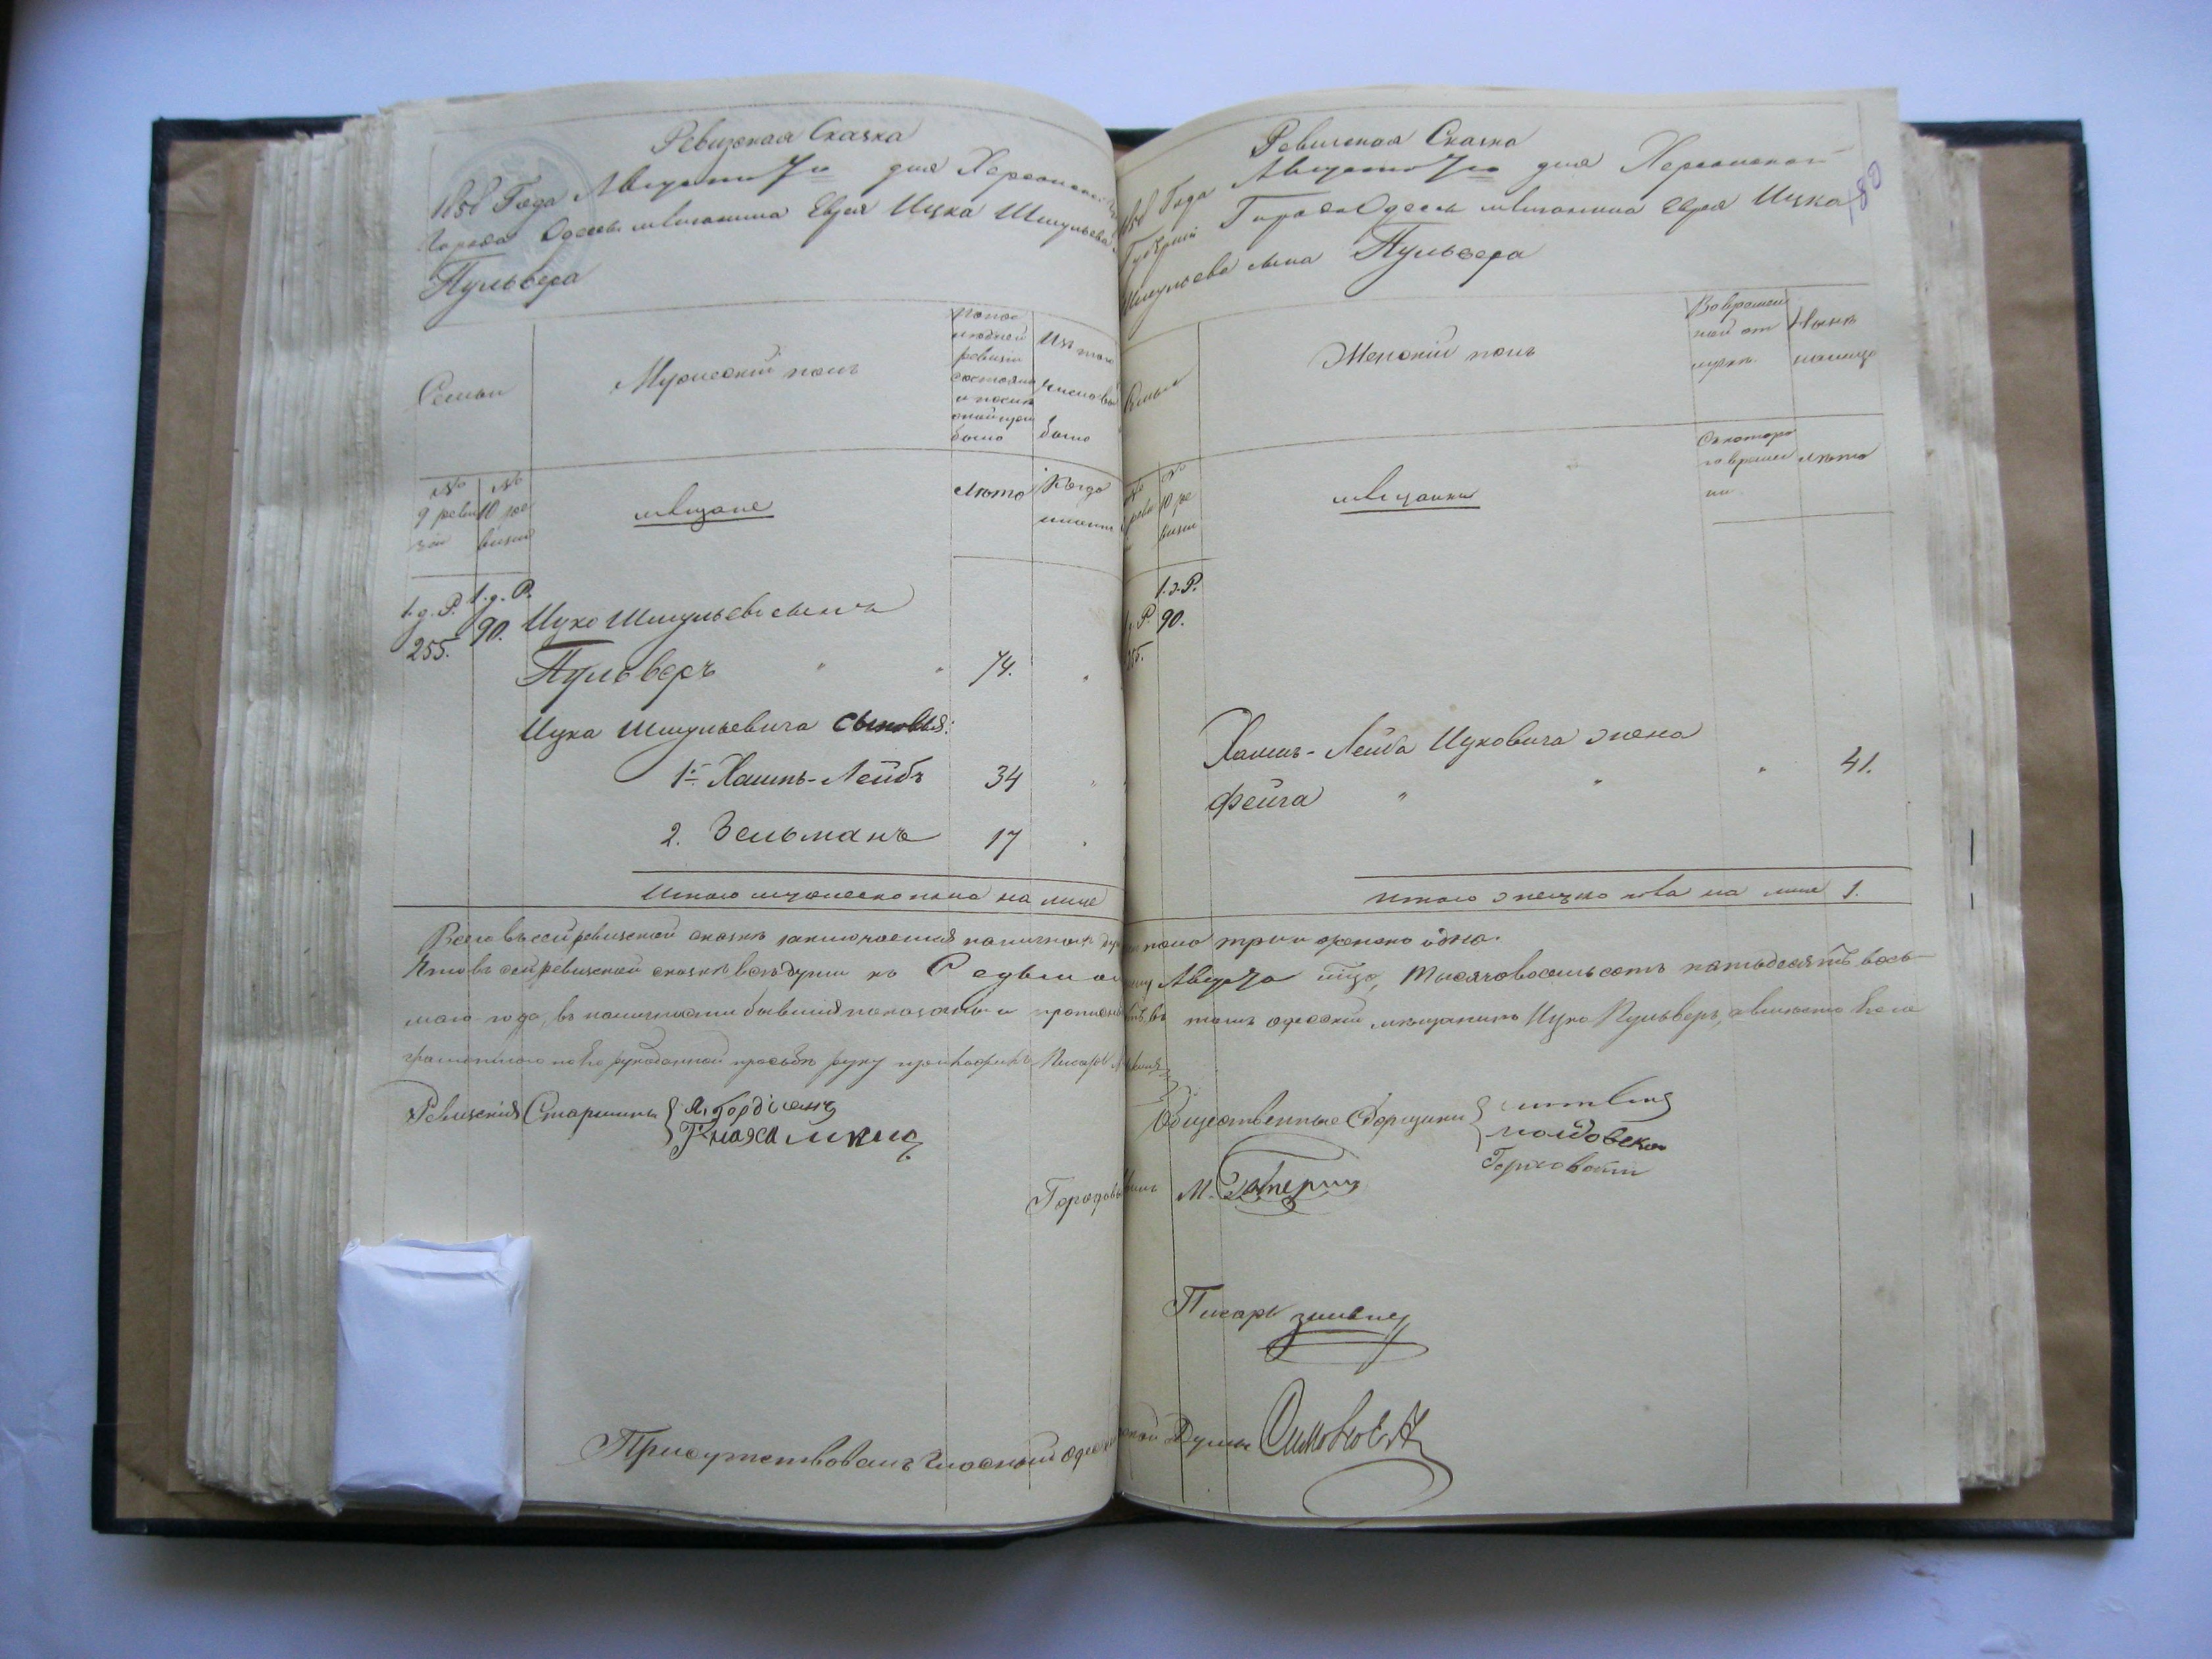 Ревизская Сказка
1858 Года Августа 7го дня Херсонской
Города Одессы мещанина Еврея Ицка Шмульева
Пульвера
Семьи
Мужескій полъ
По последней ревизіи состояло и после оной
было
Изъ того числа выбыло
№ 9 ревизіи
№ 10 ревизіи
мещане
Лета
Когда именно
1.д.Р. 255.
1.д.Р. 90.
Ицко Шмульевъ сынъ
Пульверъ " " 74. "
Ицка Шмульевича сыновья:
1й Хаимъ-Лейбъ 34 "
2. Зельманъ 17 "
Итого мужеска пола на лице
Ревизская Сказка
1858 Года Августа 7го дня Херсонской
Губерніи Города Одессы мещанина Еврея Ицка
Шмульева сына Пульвера
180
Семьи
Женскій полъ
Во временной отлучке
Ныне на лицо
ревизіи
№ 10 ревизіи
мещанки
Съ которого времени
Лета
1.д.Р. 90.
Хаимъ-Лейба Ицковича жена
Фейга " " " 41.
Итого женска пола на лице 1.
Всего въ сей ревизской сказке заключается наличныхъ душ пола три и женска одна.
Что въ сей ревизской сказке все души по Седьмое Августа тысяча восемь сотъ пятьдесятъ вось-
маго года, въ наличности бывшия показаны и въ томъ одесскій мещанинъ Ицко Пульверъ, а вместо Его не
грамотного по Его рукоданной просьбе руку приложилъ Писарь
Ревизскія Старшины
Общественные Сборщики
М.
Писарь
Присутствовалъ Гласный Одесской Думы